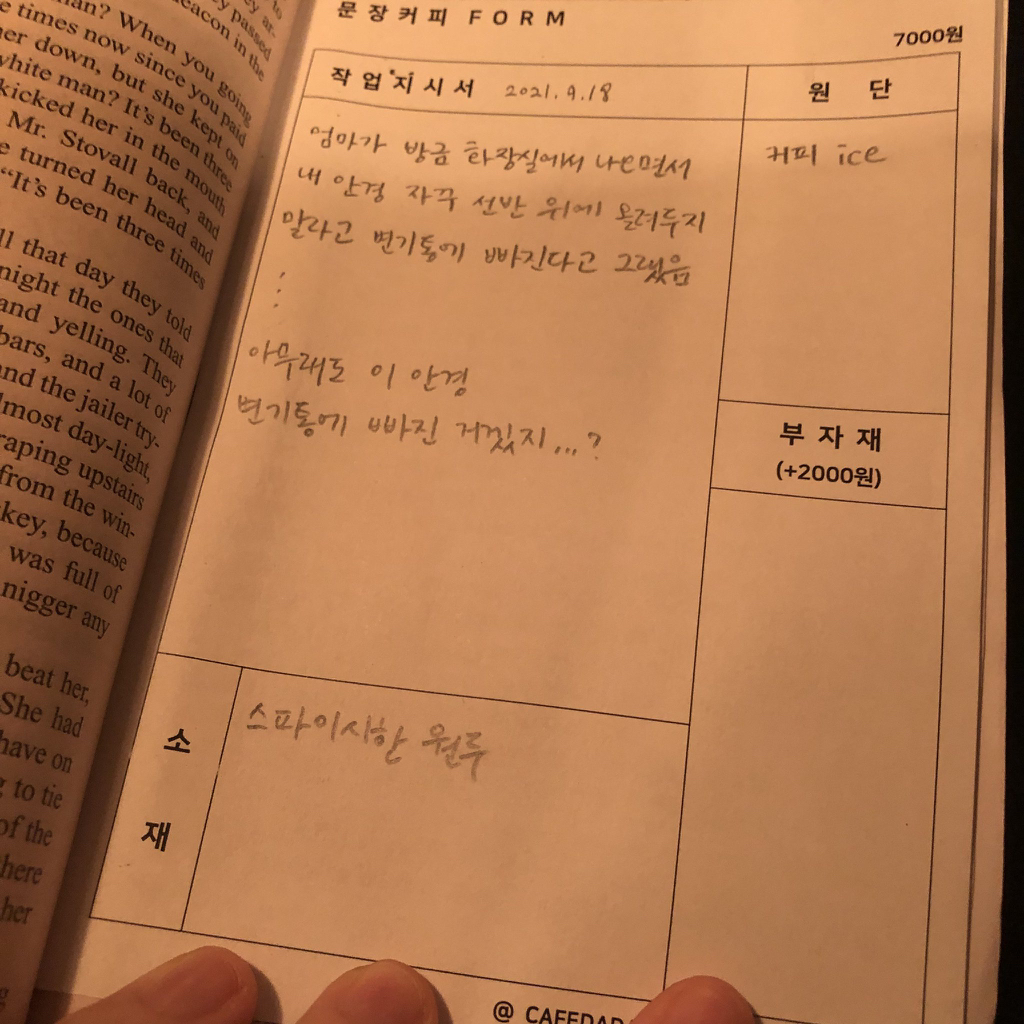 man? When you going
beacon in the
e times now since you paid
her down, but she kept on
white man? It's been three
kicked her in the mouth
Mr. Stovall back, and
e turned her head and
"It's been three times
ll that day they told
night the ones that
and yelling. They
bars, and a lot of
and the jailer try-
lmost day-light,
raping upstairs
from the win-
key, because
was full of
nigger any
beat her,
She had
have on
g to tie
of the
here
her
문장커피 FORM
7000원
작업지시서 2021.9.18
원단
엄마가 방금 화장실에서 나오면서
내 안경 자꾸 선반 위에 올려두지
말라고 변기통에 빠진다고 그랬음
:
:
아무래도 이 안경
변기통에 빠진 거겠지...?
커피 ice
부자재
(+2000원)
소재
스파이시한 원두
@ CAFEDAD